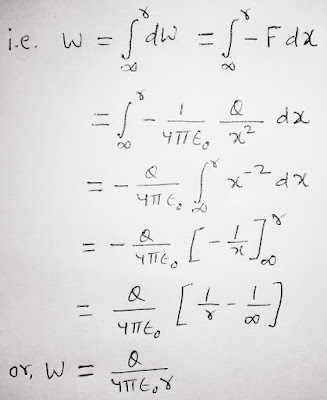 i.e. W = ∫_∞^r dW = ∫_∞^r -F dx
= ∫_∞^r - 1/4πε₀ Q/x² dx
= - Q/4πε₀ ∫_∞^r x⁻² dx
= - Q/4πε₀ [-1/x]_∞^r
= Q/4πε₀ [1/r - 1/∞]
or, W = Q/4πε₀r